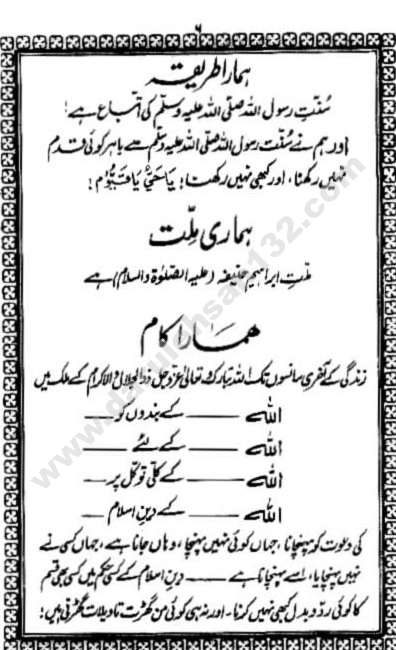 ۶
ہمارا طریقہ
سُنّتِ رسول اللہ صلی اللہ علیہ وسلّم کی اتّباع ہے!
اور ہم نے سُنّت رسول اللہ صلی اللہ علیہ وسلّم سے باہر کوئی قدم
نہیں رکھنا، اور کبھی نہیں رکھنا! یَاحَیُّ یَاقَیُّوْم!
ہماری مِلّت
ملّتِ ابراہیم حنیفہ (علیہ الصّلوٰۃ والسلام) ہے
ہمارا کام
زندگی کے آخری سانسوں تک اللہ تبارک تعالیٰ عزّوجل ذوالجلال والاکرام کے ملک میں
اللہ ــــــ کے بندوں کو ــــ
اللہ ــــــ کے لئے ــــ
اللہ ــــــ کے کلّی توکّل پر ــــ
اللہ ــــــ کے دینِ اسلام ــــ
کی دعوت کو پہنچانا، جہاں کوئی نہیں پہنچا، وہاں جانا ہے، جہاں کسی نے
نہیں پہنچایا، اسے پہنچانا ہے ــــــ دینِ اسلام کے کسی حکم میں کسی بھی قسم
کا کوئی ردّ و بدل کبھی نہیں کرنا۔ اور نہ ہی کوئی من گھڑت تاویلات گھڑنی ہیں!